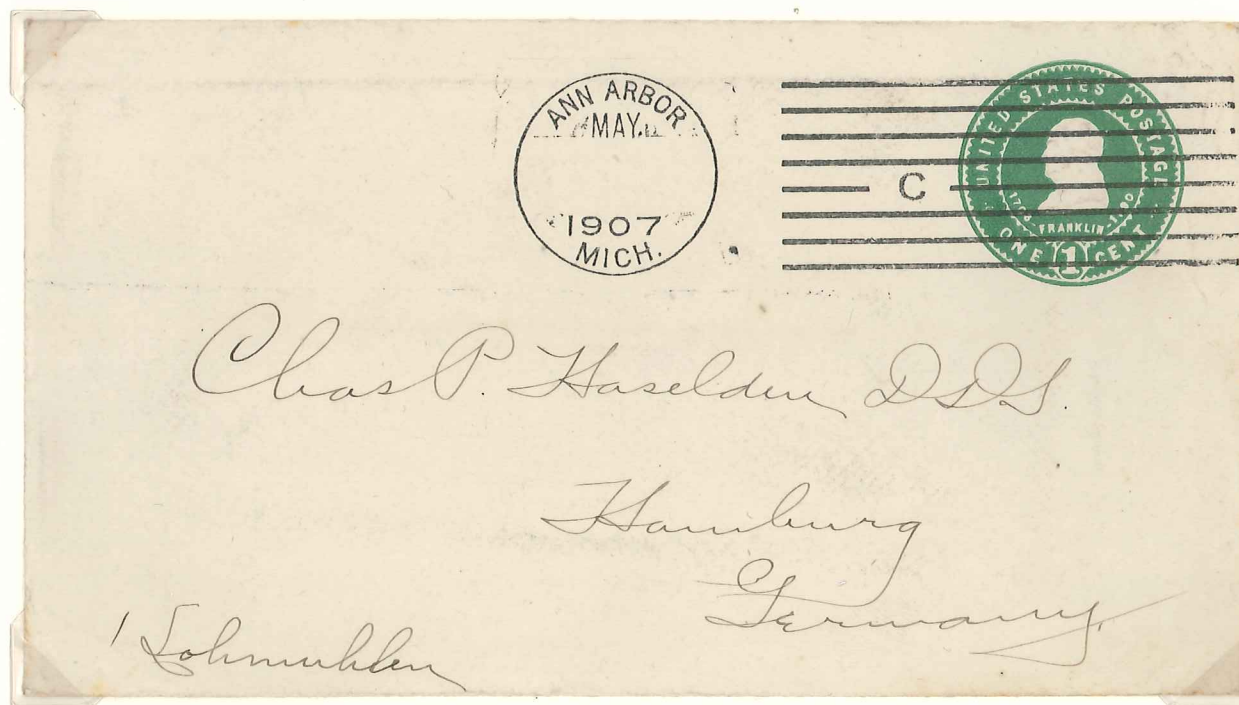 ANN ARBOR
MAY.
1907
MICH.
C
UNITED STATES POSTAGE
FRANKLIN
ONE 1 CENT
Chas P. Haselden DDS.
Hamburg
Germany.
1 Lohmuhlen